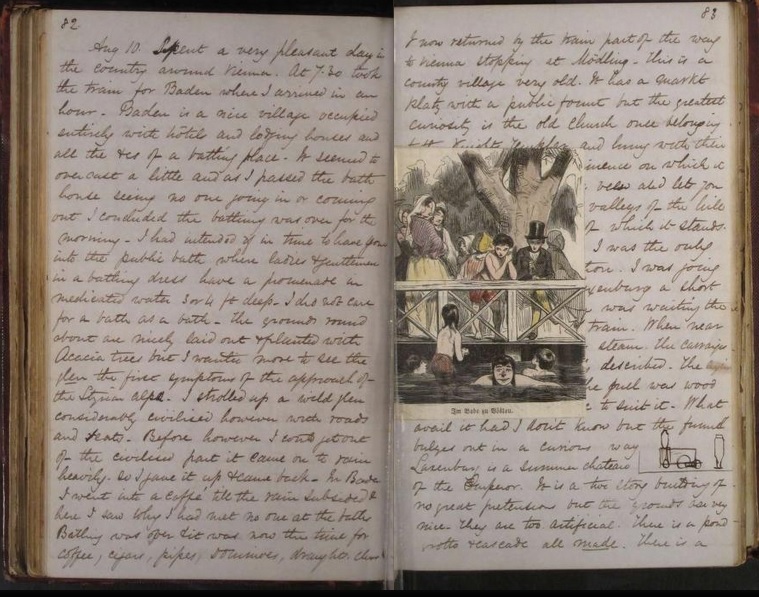 82
Aug 10. Spent a very pleasant day in
the country around Vienna. At 7.30 took
the train for Baden where I arrived in an
hour - Baden is a nice village occupied
entirely with hotels and lodging houses and
all the &cs of a bathing place. It seemed to
overcast a little and as I passed the bath
house seeing no one going in or coming
out I concluded the bathing was over for the
morning - I had intended if in time to have gone
into the public bath where ladies & gentlemen
in a bathing dress have a promenade in
medicated water 3 or 4 ft deep. I did not care
for a bath as a bath - the grounds round
about are nicely laid out & planted with
Acacia trees but I wanted more to see the
glen the first symptoms of the approach of
the Styrian alps. I strolled up a wild glen
considerably civilised however with roads
and seats. Before however I could get out
of the civilised part it came on to rain
heavily. So I gave it up & came back - In Baden
I went into a caffe till the rain subsided &
here I saw why I had met no one at the baths
Bathing was over & it was now the time for
coffee, cigars, pipes, dominoes, draughts
83
I now returned by the train part of the way
to Vienna stopping at Mödling. This is a
country village very old. It has a Markt
platz with a public fount but the greatest
curiosity is the old church once belonging
Knights Templar and being with their
eminence on which it
and let you
valleys of the hill
of which it stands.
I was the only
I was going
a short
was waiting the
train. When near
steam. the carriages
described. The
fuel was wood
to suit it - What
avail it had I don't know but the funnel
bulges out in a curious way
Laxenburg is a summer chateau
of the Emperor. It is a two story building of
no great pretensions but the grounds are very
nice. They are too artificial. There is a pond
grotto & cascade all made. There is a
Im Bade zu Vöslau.